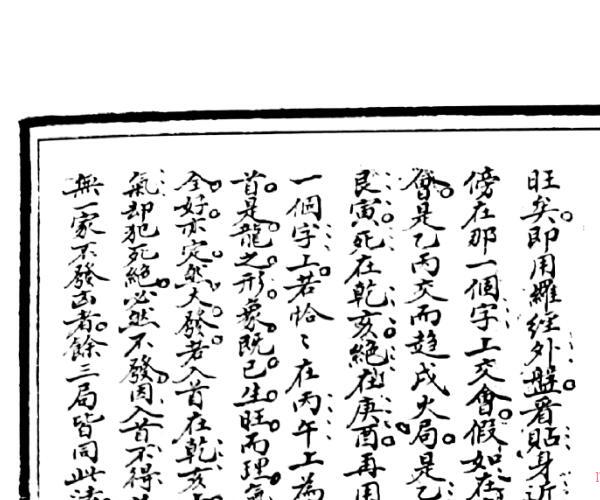 旺矣即用羅經外盤看貼身近
傍在那一個字上交會假如在
會是乙丙交而趨戌火局是乙
艮寅死在乾亥絕在庚酉再用
一個字上若恰々在丙午上為
首是龍之形象既已生旺而理氣
全好亦定然大發若入首在乾亥
氣却犯死絕必然不發因入首不得
無一家不發凶者餘三局皆同此法